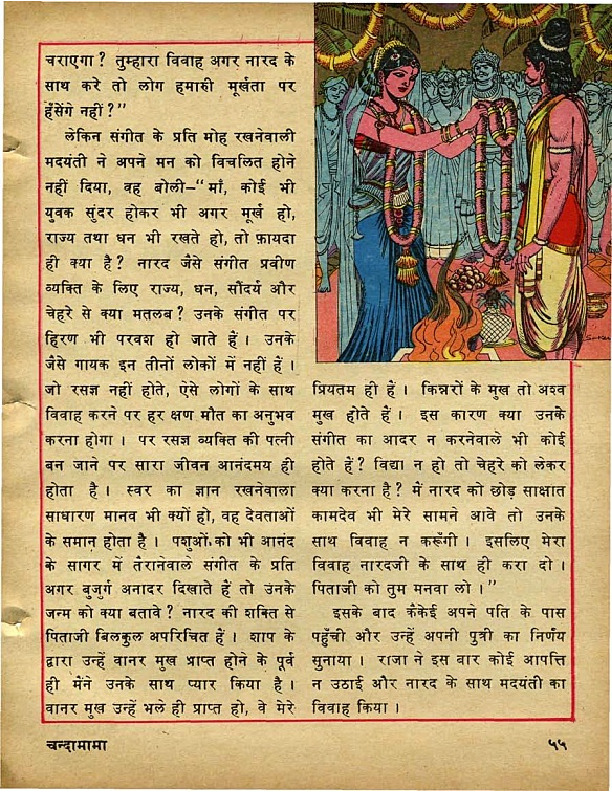 चराएगा? तुम्हारा विवाह अगर नारद के
साथ करें तो लोग हमारी मूर्खता पर
हँसेंगे नहीं?”
लेकिन संगीत के प्रति मोह रखनेवाली
मदयंती ने अपने मन को विचलित होने
नहीं दिया, वह बोली–“माँ, कोई भी
युवक सुंदर होकर भी अगर मूर्ख हो,
राज्य तथा धन भी रखते हो, तो फ़ायदा
ही क्या है? नारद जैसे संगीत प्रवीण
व्यक्ति के लिए राज्य, धन, सौंदर्य और
चेहरे से क्या मतलब? उनके संगीत पर
हिरण भी परवश हो जाते हैं। उनके
जैसे गायक इन तीनों लोकों में नहीं हैं।
जो रसज्ञ नहीं होते, ऐसे लोगों के साथ
विवाह करने पर हर क्षण मौत का अनुभव
करना होगा। पर रसज्ञ व्यक्ति की पत्नी
बन जाने पर सारा जीवन आनंदमय ही
होता है। स्वर का ज्ञान रखनेवाला
साधारण मानव भी क्यों हो, वह देवताओं
के समान होता है। पशुओं को भी आनंद
के सागर में तैरानेवाले संगीत के प्रति
अगर बुजुर्ग अनादर दिखाते हैं तो उनके
जन्म को क्या बतावे? नारद की शक्ति से
पिताजी बिलकुल अपरिचित हैं। शाप के
द्वारा उन्हें वानर मुख प्राप्त होने के पूर्व
ही मैंने उनके साथ प्यार किया है।
वानर मुख उन्हें भले ही प्राप्त हो, वे मेरे
प्रियतम ही हैं। किन्नरों के मुख तो अश्व
मुख होते हैं। इस कारण क्या उनके
संगीत का आदर न करनेवाले भी कोई
होते हैं? विद्या न हो तो चेहरे को लेकर
क्या करना है? में नारद को छोड़ साक्षात
कामदेव भी मेरे सामने आवे तो उनके
साथ विवाह न करूँगी। इसलिए मेरा
विवाह नारदजी के साथ ही करा दो।
पिताजी को तुम मनवा लो।”
इसके बाद कैकेई अपने पति के पास
पहुँची और उन्हें अपनी पुत्री का निर्णय
सुनाया। राजा ने इस बार कोई आपत्ति
न उठाई और नारद के साथ मदयंती का
विवाह किया।
चन्दामामा
५५